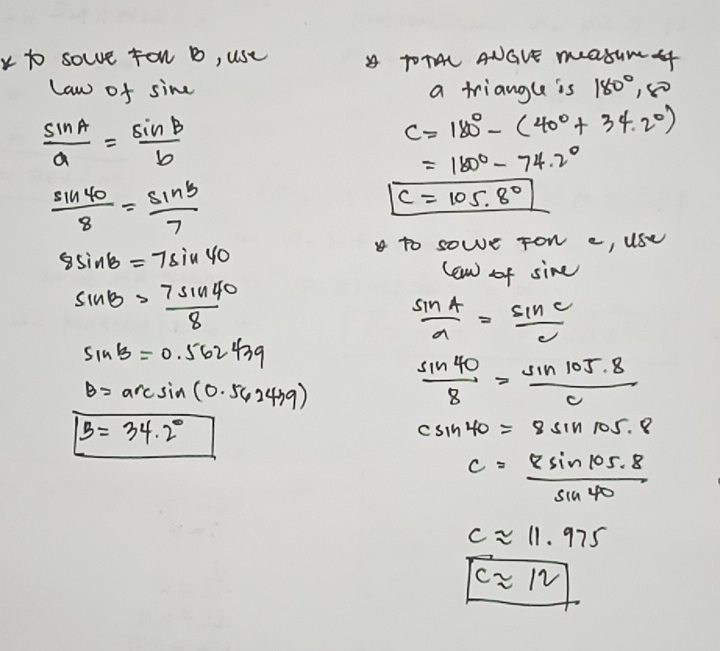 * to solve for B, use
Law of sine
sin A / a = sin B / b
sin 40 / 8 = sin B / 7
8 sin B = 7 sin 40
sin B = 7 sin 40 / 8
sin B = 0.562439
B = arcsin (0.562439)
B = 34.2°
* TOTAL ANGLE measure of
a triangle is 180°, so
C = 180° - (40° + 34.2°)
= 180° - 74.2°
C = 105.8°
* to solve for c, use
law of sine
sin A / a = sin C / c
sin 40 / 8 = sin 105.8 / c
c sin 40 = 8 sin 105.8
c = 8 sin 105.8 / sin 40
c ≈ 11.975
c ≈ 12